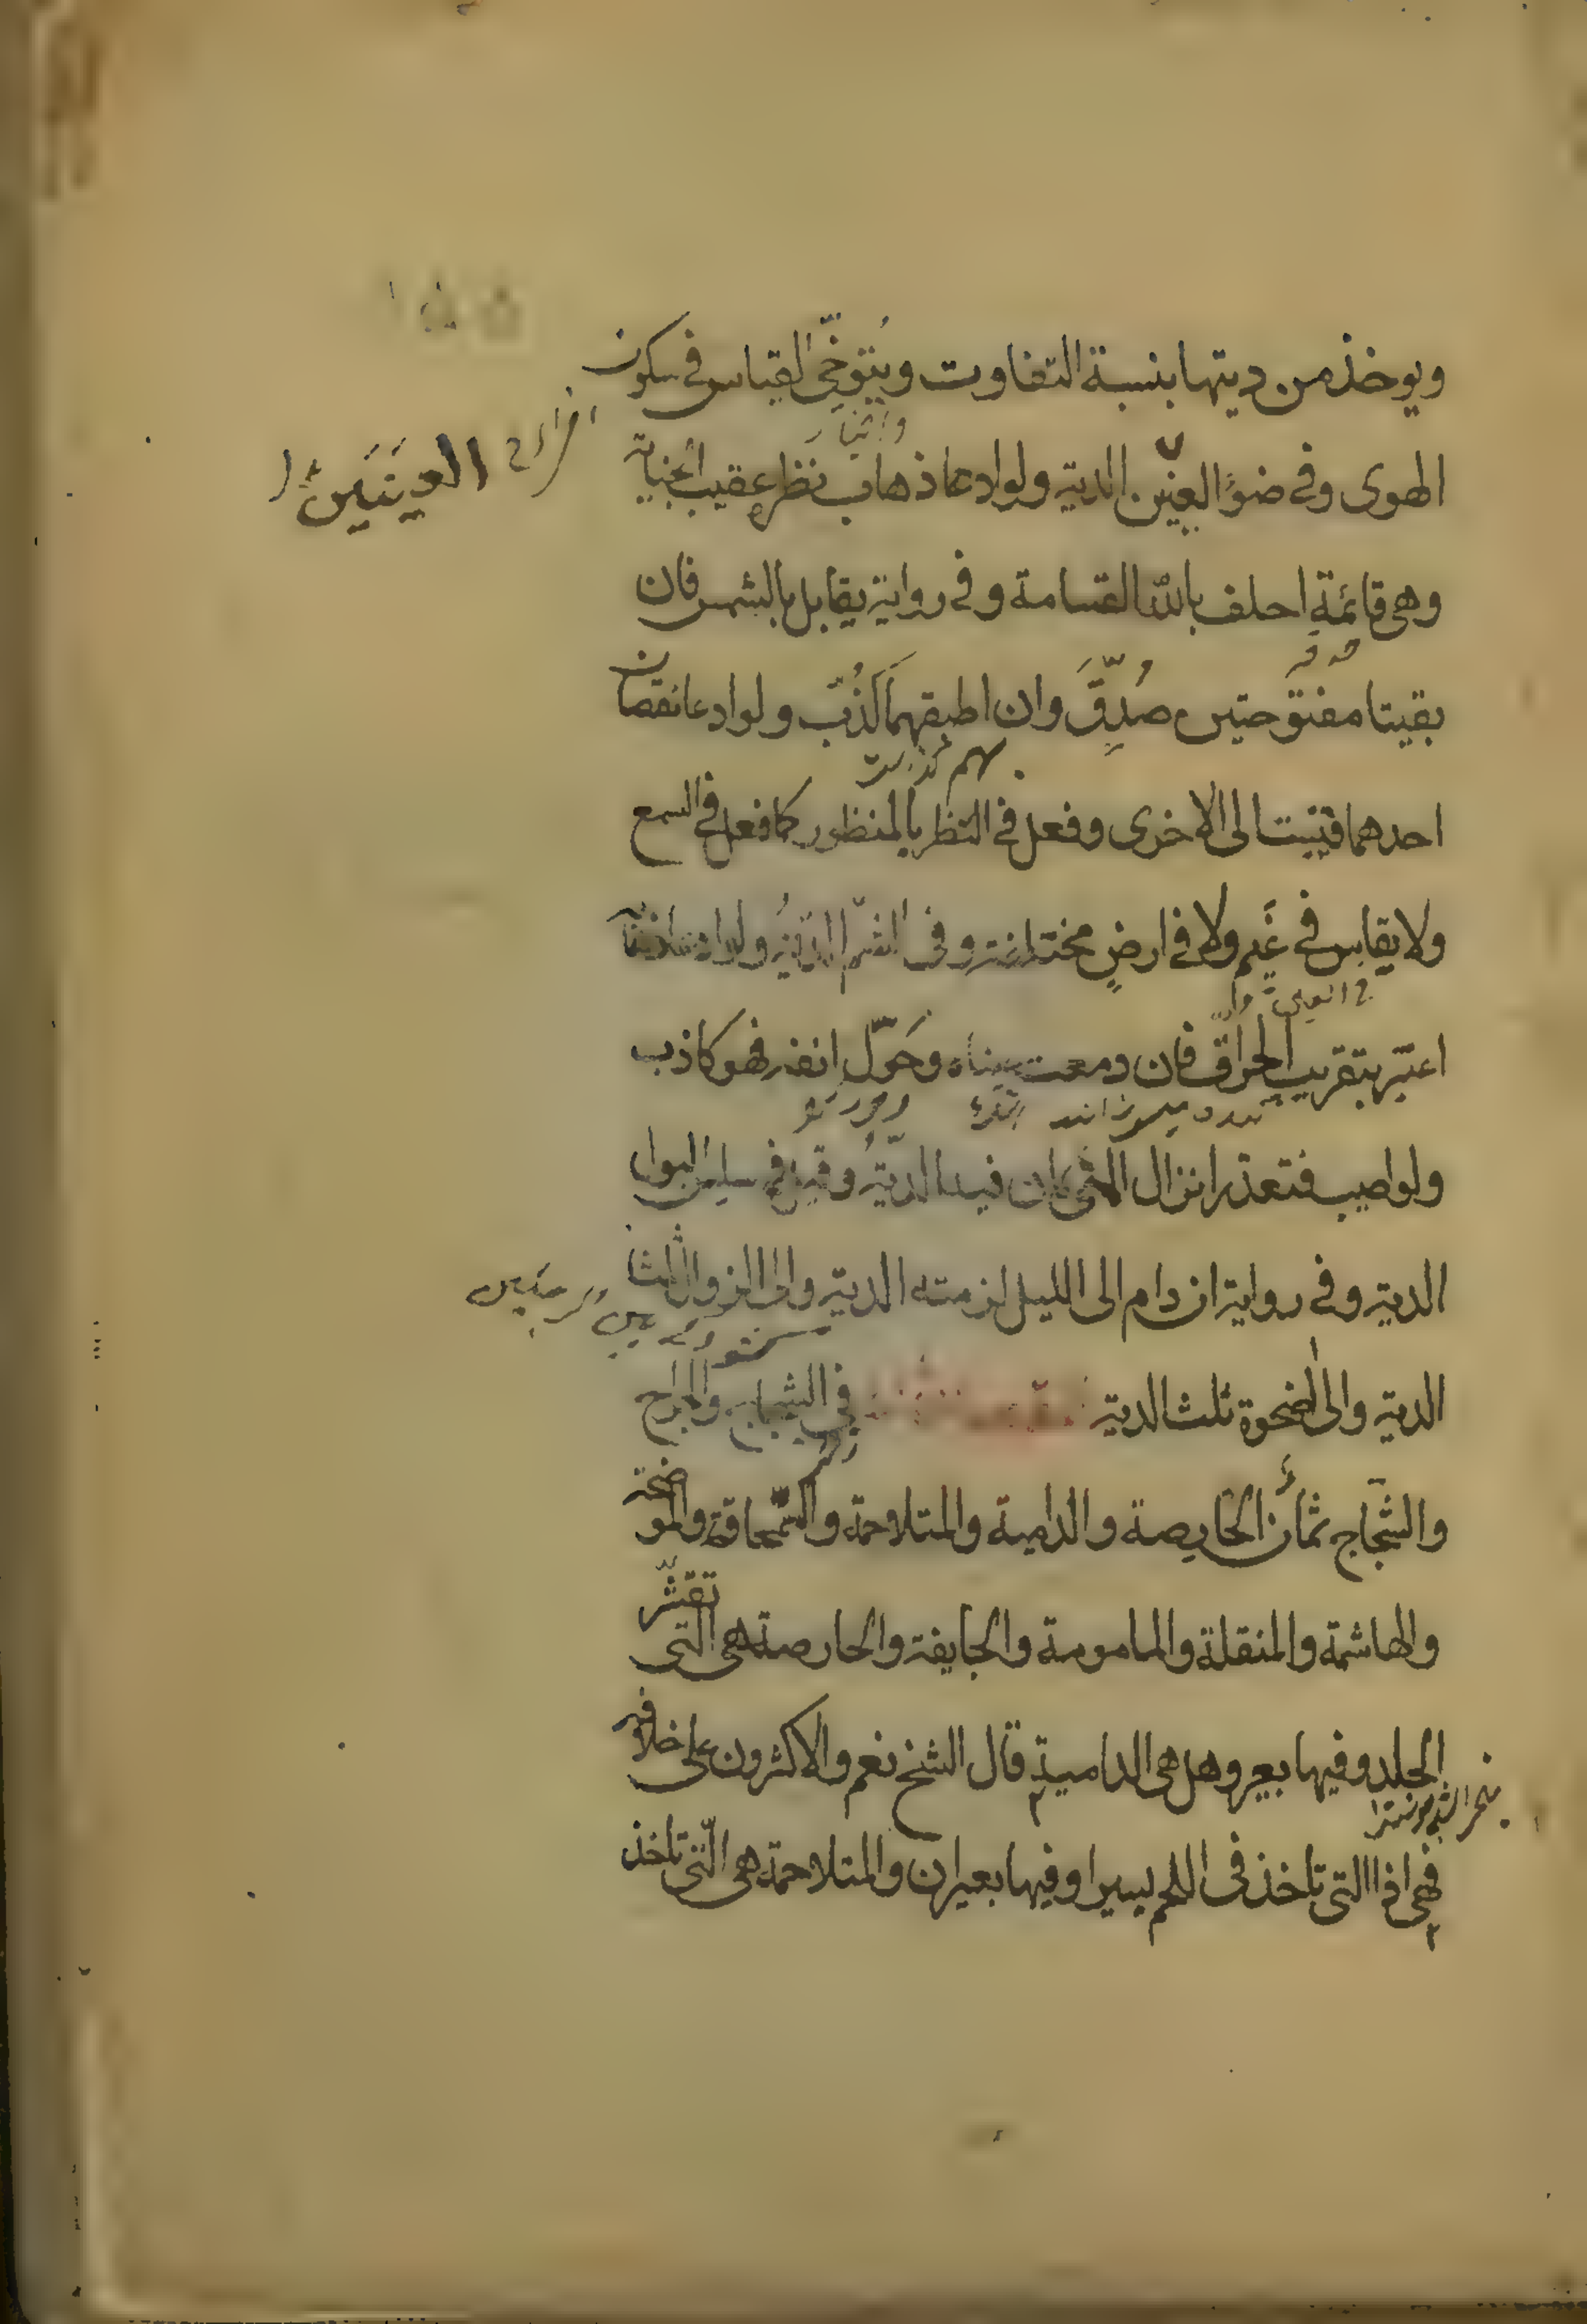 ويوخذ من ديتها بنسبة التفاوت ويُتوخّى القياس في سكون
الهوى وفي ضوء العين الدية ولو ادعا ذهاب نظره عقيب الجناية
العينين
وهي قائمة احلف بالله القسامة وفي رواية يقابل بالشمس فان
بقيتا مفتوحتين صُدِّقَ وان اطبقهما كُذّب ولو ادعا نقصان
احدهما قيست الى الاخرى وفعل في النظر بالمنظور كما فعل في السمع
ولا يقاس في غَيم ولا في ارضٍ مختلفة وفي الشمّ الديةُ ولو ادعا ذهابه
اعتبر بتقريب الحراق فان دمعت عيناه وحَوّل انفه فهو كاذب
ولو اصيب فتعذر انزال المني كان فيه الديّةُ وقيل في سلس البول
الدية وفي رواية ان دام الى الليل لزمته الدية والى الزوال ثلثا
الدية والى الضحوة ثلث الدية في الشجاج والجراح
والشّجاج ثمان الحارصة والدامية والمتلاحمة والسّمحاقة والموضحة
والهاشمة والمنقلة والمامومة والجايفة والحارصة هي التي تقشّر
الجلد وفيها بعير وهل هي الدامية قال الشيخ نعم والاكثرون على خلافه
فهي اذا التي تاخذ في اللحم يسيرا وفيها بعيران والمتلاحمة هي الّتي تاخذ